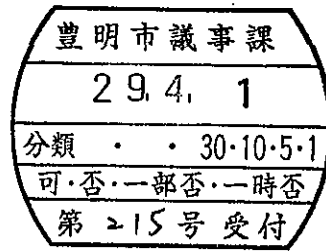 豊明市議事課
29.4.1
分類 ・ ・ 30・10・5・1
可・否・一部否・一時否
第215号受付